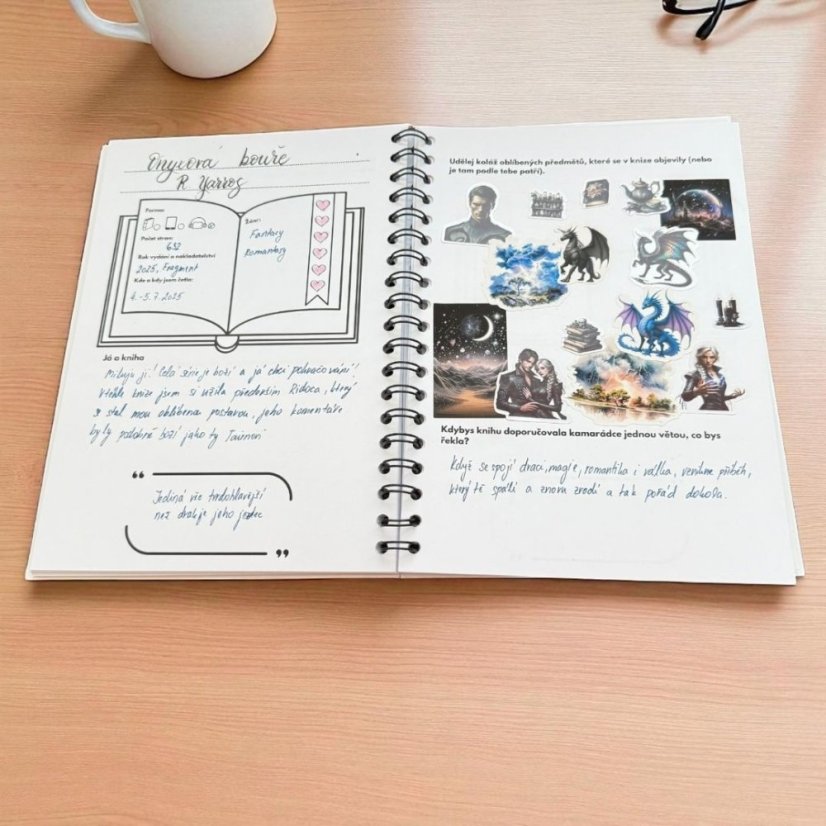 Onyxová bouře
R. Yarros
Forma:
Počet stran:
632
Rok vydání a nakladatelství
2025, Fragment
Kde a kdy jsem četla:
4.-5.7.2025
Žánr:
Fantasy
Romantasy
Já a kniha
Miluju ji! Celá série je boží a já chci pokračování!
V téhle knize jsem si užila především Ridoca, který
se stal mou oblíbenou postavou, jeho komentáře
byly podobně boží jako ty Tairnovi
Jediná věc tvrdohlavější
než drak je jeho jezdec
Udělej koláž oblíbených předmětů, které se v knize objevily (nebo
je tam podle tebe patří).
Kdybys knihu doporučovala kamarádce jednou větou, co bys
řekla?
Když se spojí draci, magie, romantika i válka, vznikne příběh,
který tě spálí a znovu zrodí a tak pořád dokola.